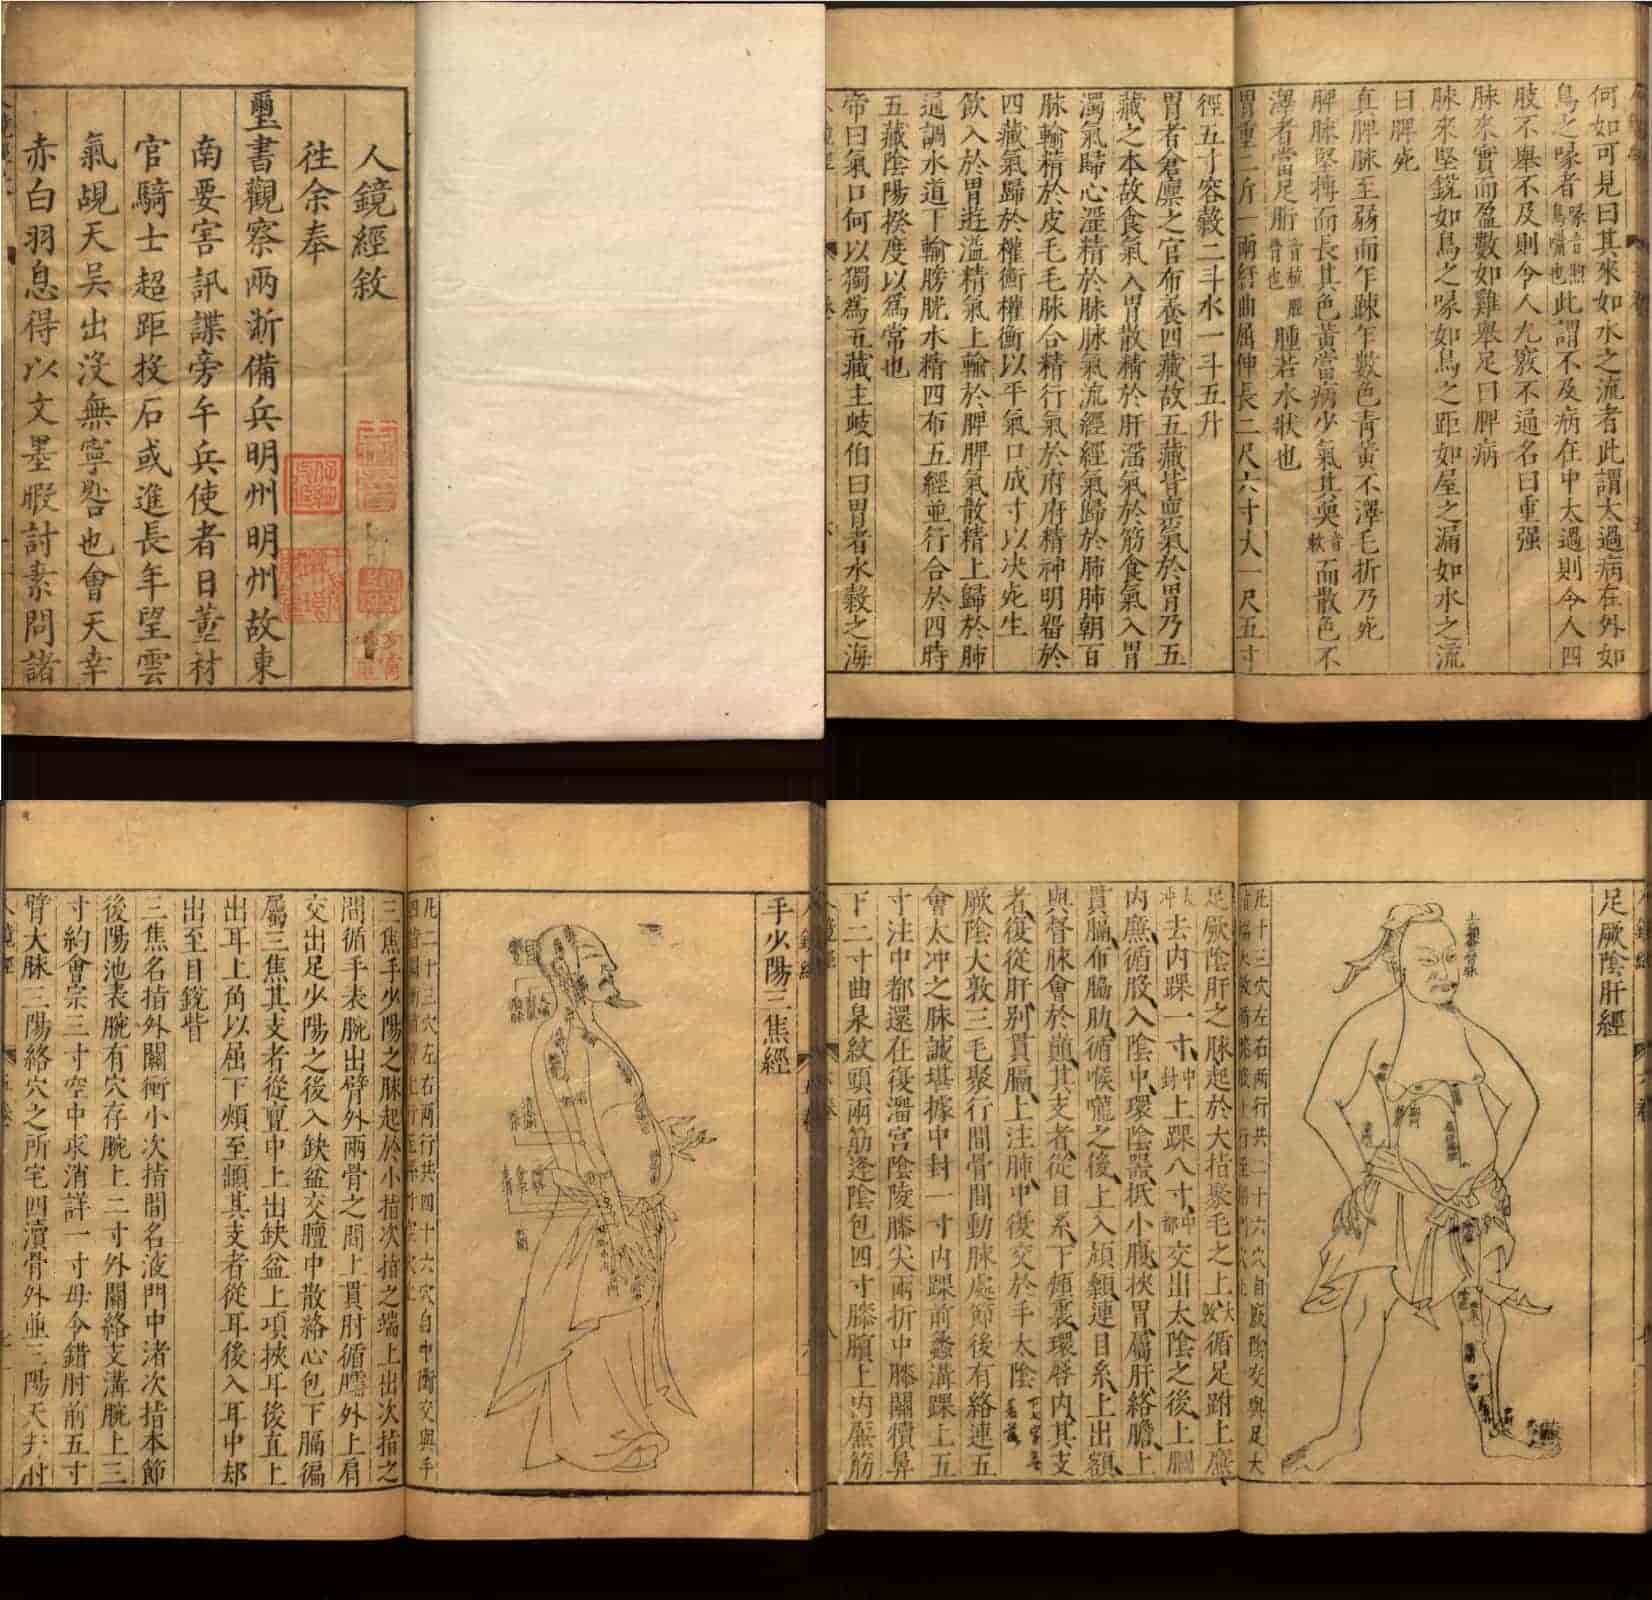 人鏡經敘
徃余奉
璽書觀察两浙備兵明州明州故東
南要害訊諜旁午兵使者日董材
官騎士超距投石或進長年望雲
氣覘天吳出沒無寧晷也會天幸
赤白羽息得以文墨暇討素問諸
何如可見曰其來如水之流者此謂太過病在外如
鳥之喙者此謂不及病在中太過則令人四
肢不舉不及則令人九竅不通名曰重强
脉來實而盈數如雞舉足曰脾病
脉來堅鋭如鳥之喙如鳥之距如屋之漏如水之流
曰脾死
真脾脉至弱而乍踈乍數色青黄不澤毛折乃死
脾脉堅搏而長其色黄當病少氣其耎音軟而散色不
澤者當足䯒腫若水狀也
胃重二斤一兩紆曲屈伸長二尺六寸大一尺五寸
徑五寸容穀二斗水一斗五升
胃者倉廩之官布養四藏故五藏皆禀氣於胃乃五
藏之本故食氣入胃散精於肝滛氣於筋食氣入胃
濁氣歸心滛精於脉脉氣流經經氣歸於肺肺朝百
脉輸精於皮毛毛脉合精行氣於府府精神明畱於
四藏氣歸於權衡權衡以平氣口成寸以决死生
飲入於胃遊溢精氣上輸於脾脾氣散精上歸於肺
通調水道下輸膀胱水精四布五經並行合於四時
五藏陰陽揆度以爲常也
帝曰氣口何以獨爲五藏主岐伯曰胃者水穀之海
手少陽三焦經
凡二十三穴左右两行共四十六穴自中衝交與手
三焦手少陽之脉起於小指次指之端上出次指之
間循手表腕出臂外兩骨之間上貫肘循臑外上肩
交出足少陽之後入缺盆交膻中散絡心包下膈徧
屬三焦其支者從膻中上出缺盆上項挾耳後直上
出耳上角以屈下頰至䪼其支者從耳後入耳中却
出至目鋭眥
三焦名指外關衝小次指間名液門中渚次指本節
後陽池表腕有穴存腕上二寸外關絡支溝腕上三
寸約會宗三寸空中求消詳一寸毋令錯肘前五寸
臂大脉三陽絡穴之所宅四瀆骨外並三陽天井肘
足厥陰肝經
凡十三穴左右两行共二十六穴自厥陰交與足大
足厥陰肝之脉起於大指聚毛之上大敦循足跗上廉
去内踝一寸中封上踝八寸中都交出太陰之後上膕
内廉循股入陰中環陰器抵小腹挾胃屬肝絡膽上
貫膈布脇肋循喉嚨之後上入頏顙連目系上出額
與督脉會於巔其支者從目系下頰裏環唇内其支
者復從肝别貫膈上注肺中復交於手太陰
厥陰大敦三毛聚行間骨間動脉處節後有絡連五
會太冲之脉誠堪據中封一寸内踝前蠡溝踝上五
寸注中都還在復溜宫陰陵膝尖兩折中膝關犢鼻
下二寸曲泉紋頭兩筋逢陰包四寸膝臏上内廉筋